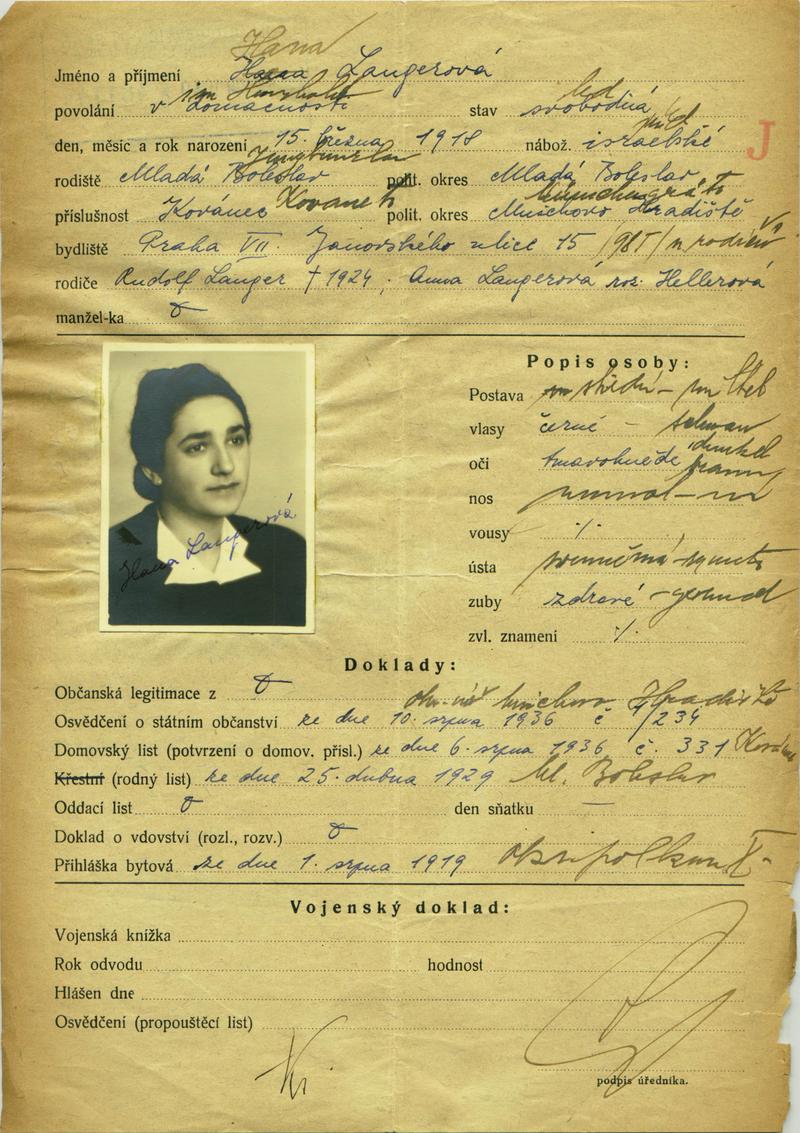 Hana
Jméno a příjmení Hana Langerová
povolání v domácnosti im Haushalt stav svobodná led
den, měsíc a rok narození 15. března 1918 nábož. israelské
J
rodiště Mladá Boleslav Jungbunzlau polit. okres Mladá Boleslav
příslušnost Kovánec Kovanetz polit. okres Mnichovo Hradiště Münchengrätz
bydliště Praha VII. Janovského ulice 15 /985/ u rodičů
rodiče Rudolf Langer † 1924, Anna Langerová roz. Hellerová
manžel-ka
Hana Langerová
Popis osoby:
Postava střední - mittel
vlasy černé - schwarz
oči tmavohnědé dunkelbraun
nos normal-ní
vousy ·/·
ústa souměrná
zuby zdravé - gesund
zvl. znamení ·/·
Doklady:
Občanská legitimace z
Osvědčení o státním občanství ze dne 10. srpna 1936 č /234 Mnichovo Hradiště
Domovský list (potvrzení o domov. přísl.) ze dne 6. srpna 1936 č. 331 Kovánec
Křestní (rodný list) ze dne 25. dubna 1929 Ml. Boleslav
Oddací list den sňatku —
Doklad o vdovství (rozl., rozv.)
Přihláška bytová ze dne 1. srpna 1919
Vojenský doklad:
Vojenská knížka
Rok odvodu hodnost
Hlášen dne
Osvědčení (propouštěcí list)
podpis úředníka.